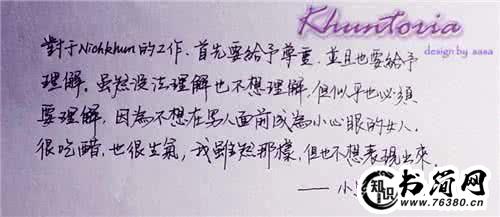 Khuntoria
design by sasa
對于Nichkhun的工作．首先要給予尊重．並且也要給予
理解．雖然沒法理解也不想理解．但似乎也必須
要理解，因為不想在男人面前成為小心眼的女人．
很吃醋．也很生氣，我雖然那樣．但也不想表現出來．
——小
知识
书简网
www.76380.cn